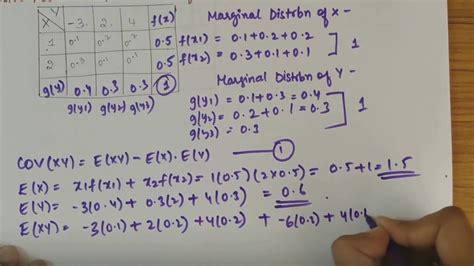 X Y -3 2 4 f(x)
1 0.1 0.2 0.2 0.5
2 0.3 0.1 0.1 0.5
g(y) 0.4 0.3 0.3 1
g(y1) g(y2) g(y3)
Marginal Distrbn of X -
f(x1) = 0.1+0.2+0.2
f(x2) = 0.3+0.1+0.1 ] 1
Marginal Distrbn of Y -
g(y1) = 0.1+0.3 = 0.4
g(y2) = 0.2+0.1 = 0.3 ] 1
g(y3) = 0.3
COV(XY) = E(XY) - E(X).E(Y) — 1
E(X) = x1f(x1) + x2f(x2) = 1(0.5)(2x0.5) = 0.5+1 = 1.5
E(Y) = -3(0.4) + 0.3(2) + 4(0.3) = 0.6
E(XY) = -3(0.1) + 2(0.2) + 4(0.2) + -6(0.3) + 4(0.1